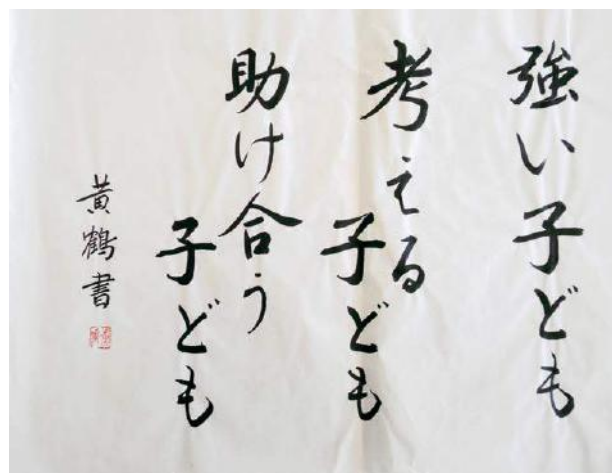 強い子ども
考える
子ども
助け合う
子ども
黄鶴書